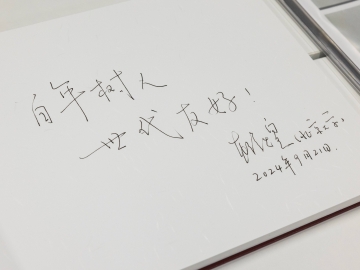 百年树人
世代友好！
北京
2024年9月21日.